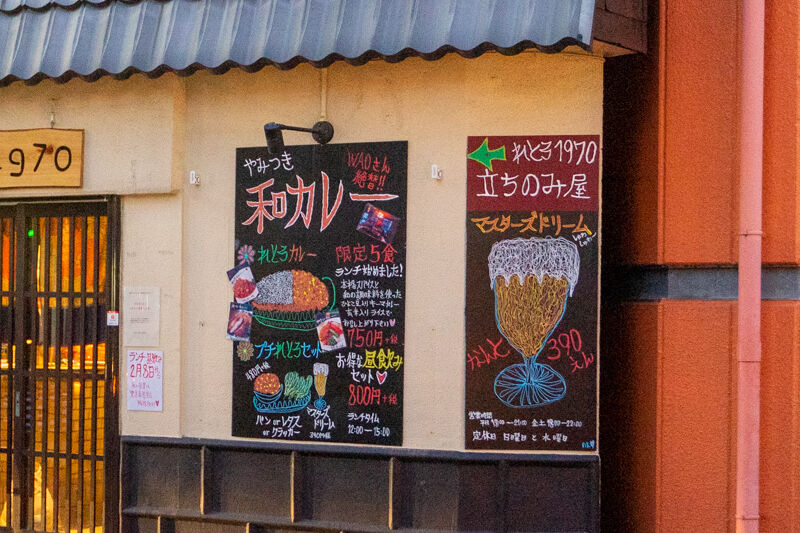 1970
やみつき
WAOさん
絶賛!!
和カレー
れとろカレー
限定5食
ランチ始めました!
本格スパイスと
和の調味料を使った
ひよこ豆入りキーマカレー
玄米入りライスで
お召し上がり下さい
750円+税
プチれとろセット
480円+税
パン or レタス
or クラッカー
マスターズ
ドリーム
390円+税
お得な昼飲み
セット
800円+税
ランチタイム
12:00〜15:00
れとろ1970
立ちのみ屋
マスターズドリーム
かんと
390
えん
営業時間
定休日 日曜日と水曜日
ランチ
2月8日